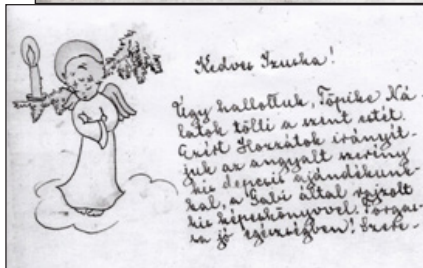 Kedves Izuska!
Úgy hallottuk, Töpike Ná-
latok tölti a szent estét.
Ezért Hozzátok irányít-
juk az angyalt szerény
kis depcsit ajándékunk-
kal, a Gabi által rajzolt
kis képeskönyvvel. Forgas-
sa jó egészségben! Szere-